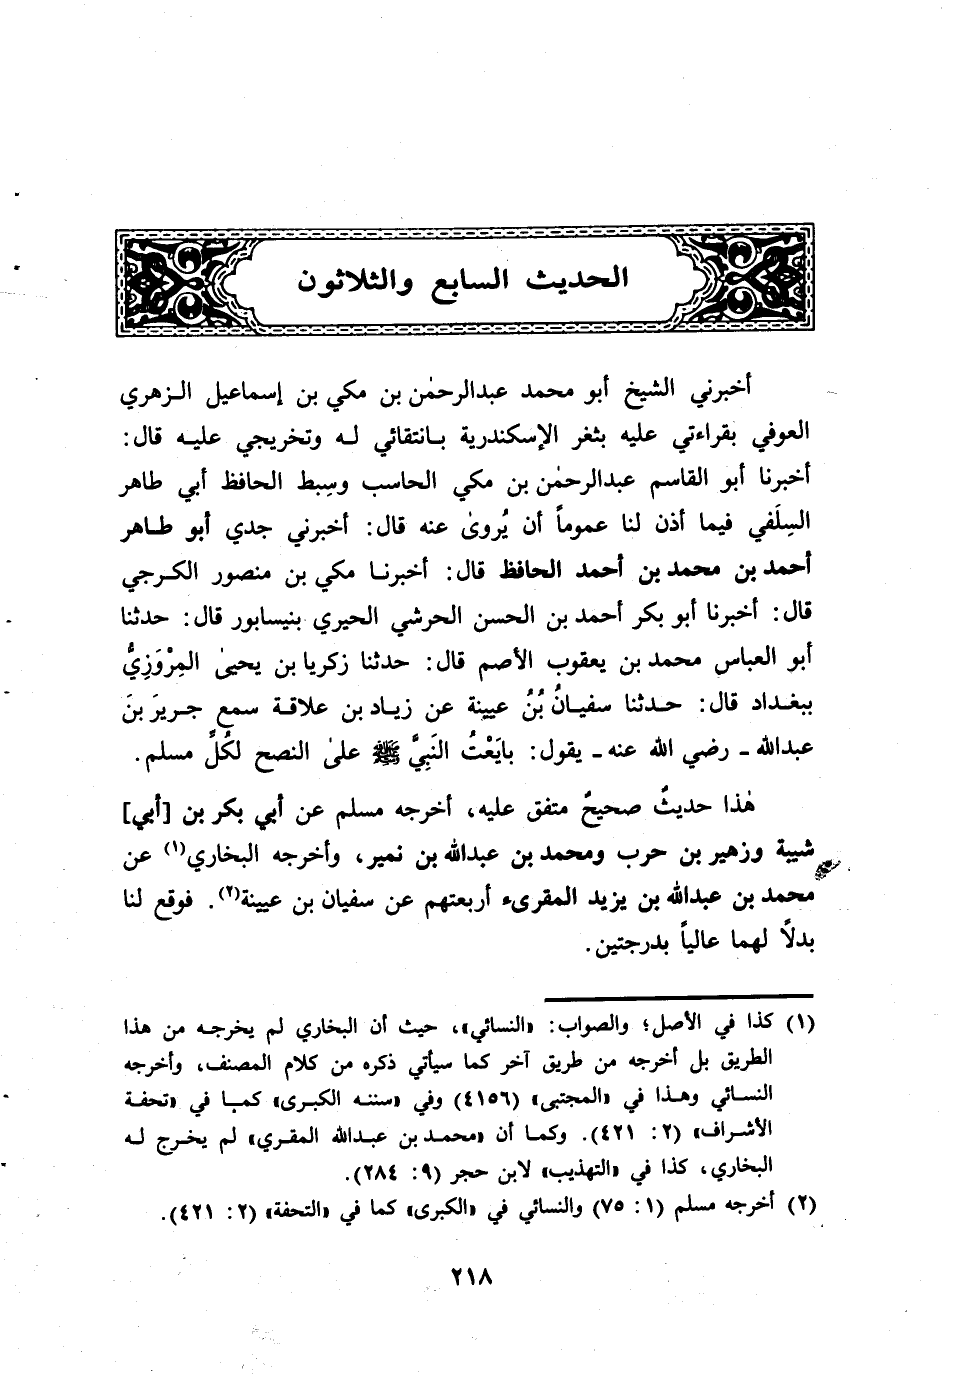 الحديث السابع والثلاثون
أخبرني الشيخ أبو محمد عبدالرحمٰن بن مكي بن إسماعيل الـزهري
العوفي بقراءتي عليه بثغر الإسكندرية بـانتقائي لـه وتخريجي عليـه قال:
أخبرنا أبو القاسم عبدالرحمٰن بن مكي الحاسب وسِبط الحافظ أبي طاهر
السِلَفي فيما أذن لنا عموماً أن يُروىٰ عنه قال: أخبرني جدي أبو طـاهر
أحمد بن محمد بن أحمد الحافظ قال: أخبرنـا مكي بن منصور الكـرجي
قال: أخبرنا أبو بكر أحمد بن الحسن الحرشي الحيري بنيسابور قال: حدثنا
أبو العباس محمد بن يعقوب الأصم قال: حدثنا زكريا بن يحيىٰ المِرْوَزِيُّ
ببغـداد قال: حـدثنا سفيـانُ بْنُ عيينة عن زيـاد بن علاقـة سمع جـريرَ بنَ
عبدالله ـ رضي الله عنه ـ يقول: بايَعْتُ النَبِيَّ ﷺ علىٰ النصح لكُلِّ مسلم.
هٰذا حديثٌ صحيحٌ متفق عليه، أخرجه مسلم عن أبي بكر بن [أبي]
شيبة وزهير بن حرب ومحمد بن عبدالله بن نمير، وأخرجه البخاري(١) عن
محمد بن عبدالله بن يزيد المقرىء أربعتهم عن سفيان بن عيينة(٢). فوقع لنا
بدلاً لهما عالياً بدرجتين.
(١) كذا في الأصل؛ والصواب: «النسائي»، حيث أن البخاري لم يخرجـه من هذا
الطريق بل أخرجه من طريق آخر كما سيأتي ذكره من كلام المصنف، وأخرجه
النسـائي وهـذا في «المجتبى» (٤١٥٦) وفي «سننـه الكبـرى» كمـا في «تحفـة
الأشـراف» (٢: ٤٢١). وكمـا أن «محمـد بن عبدالله المقـري» لم يخـرج لـه
البخاري، كذا في «التهذيب» لابن حجر (٩: ٢٨٤).
(٢) أخرجه مسلم (١: ٧٥) والنسائي في «الكبرى» كما في «التحفة» (٢: ٤٢١).
٢١٨